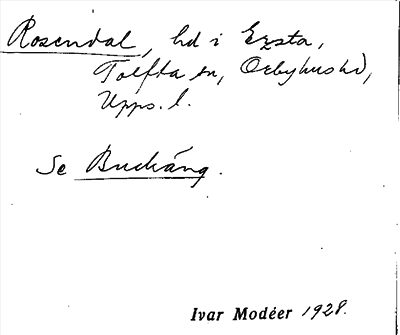 Rosendal, hd i Ersta,
Tolfta sn, Örbyhus hd,
Upps. l.
Se Buckäng.
Ivar Modéer 1928.